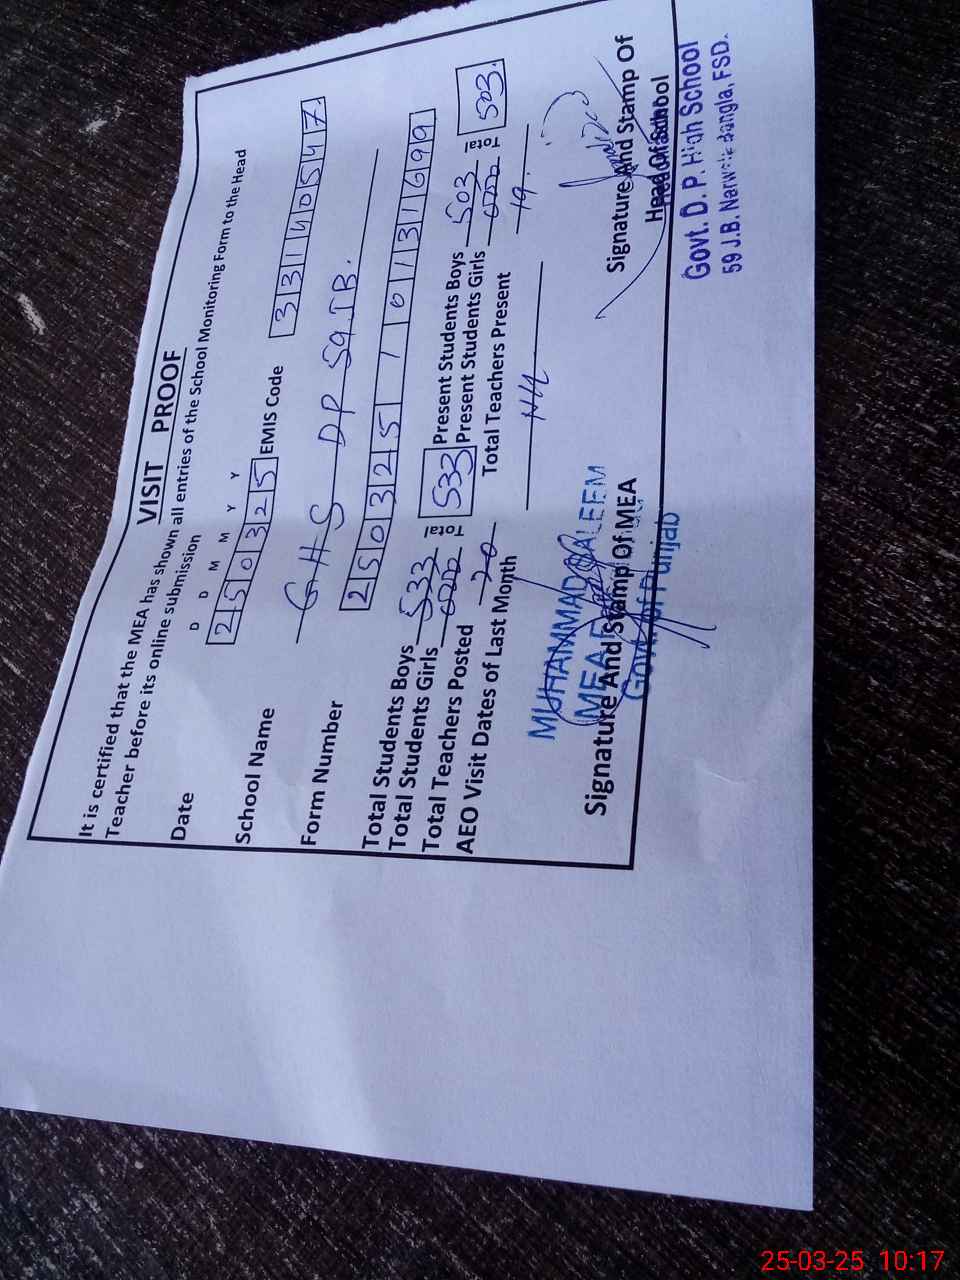 VISIT PROOF
It is certified that the MEA has shown all entries of the School Monitoring Form to the Head
Teacher before its online submission
D D M M Y Y
Date 250325 EMIS Code 33140547
School Name G H S DP 59 JB.
Form Number 250325 1 0131699
Total Students Boys 533 Total 533 Present Students Boys 503 Total 503
Total Students Girls 000 Present Students Girls 000
Total Teachers Posted 20 Total Teachers Present 19
AEO Visit Dates of Last Month Nil
MUHAMMAD SALEEM
MEA
Govt. of Punjab
Signature And Stamp Of MEA
Signature And Stamp Of
Head Of School
Govt. D. P. High School
59 J.B. Narwala Bangla, FSD.
25-03-25 10:17